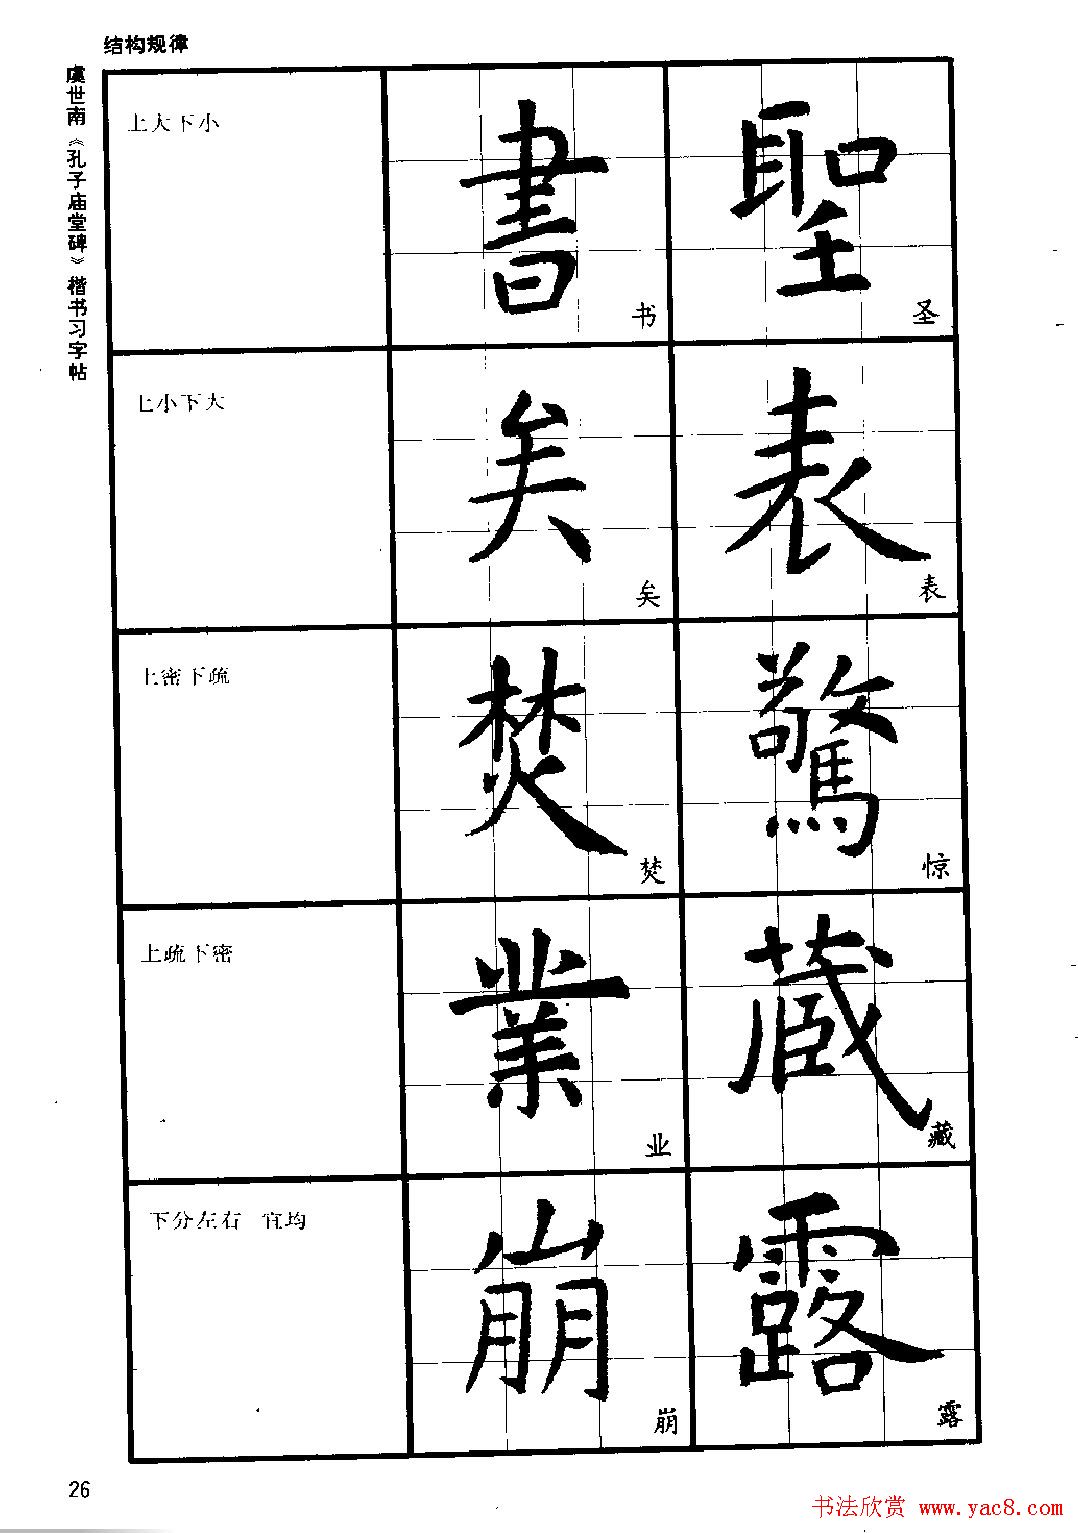 结构规律
虞世南《孔子庙堂碑》楷书习字帖
上大下小
書
书
聖
圣
上小下大
矣
矣
表
表
上密下疏
焚
焚
驚
惊
上疏下密
業
业
藏
藏
下分左右 宜均
崩
崩
露
露
26
书法欣赏 www.yac8.com